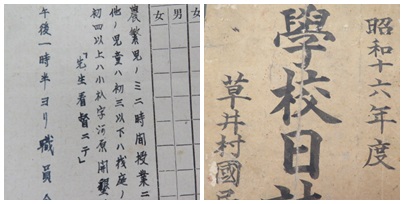 女
男
女
農繁児ノミ二時間授業ニ
他ノ児童ハ初三以下ハ校庭ノ
初四以上ハ小字河原開墾
「先生看督ニテ」
午後一時半ヨリ職員会
昭和十六年度
學校日誌
草井村國民